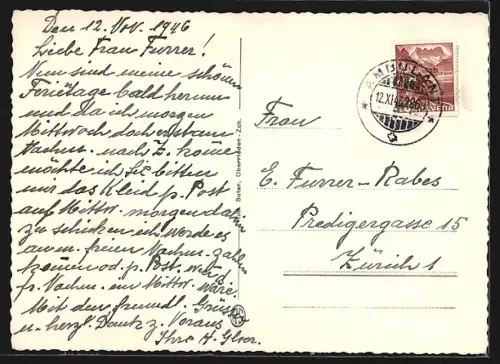 Den 12. Nov. 1946
Liebe Frau Furrer!
Nun sind meine schönen
Ferietage bald herum
und Da ich morgen
Mittwoch doch erst am
Nachm. nach Z. kome
möchte ich Sie bitten
mir das Kleid p. Post
auf Mittw. morgen
zu schicken ich werde es
am freien Nachm. zahlen
kommen od. p. Post.
fr. Nachm. ein Mittw. wäre.
Mit den freundl. Grüssen
u. herzl. Dank z. Voraus
Ihre H.
Suter, Oberrieden-Zch.
AMBULANT
12.XI.46
HELVETIA
Frau
E. Furrer-Rabes
Predigergasse 15
Zürich 1